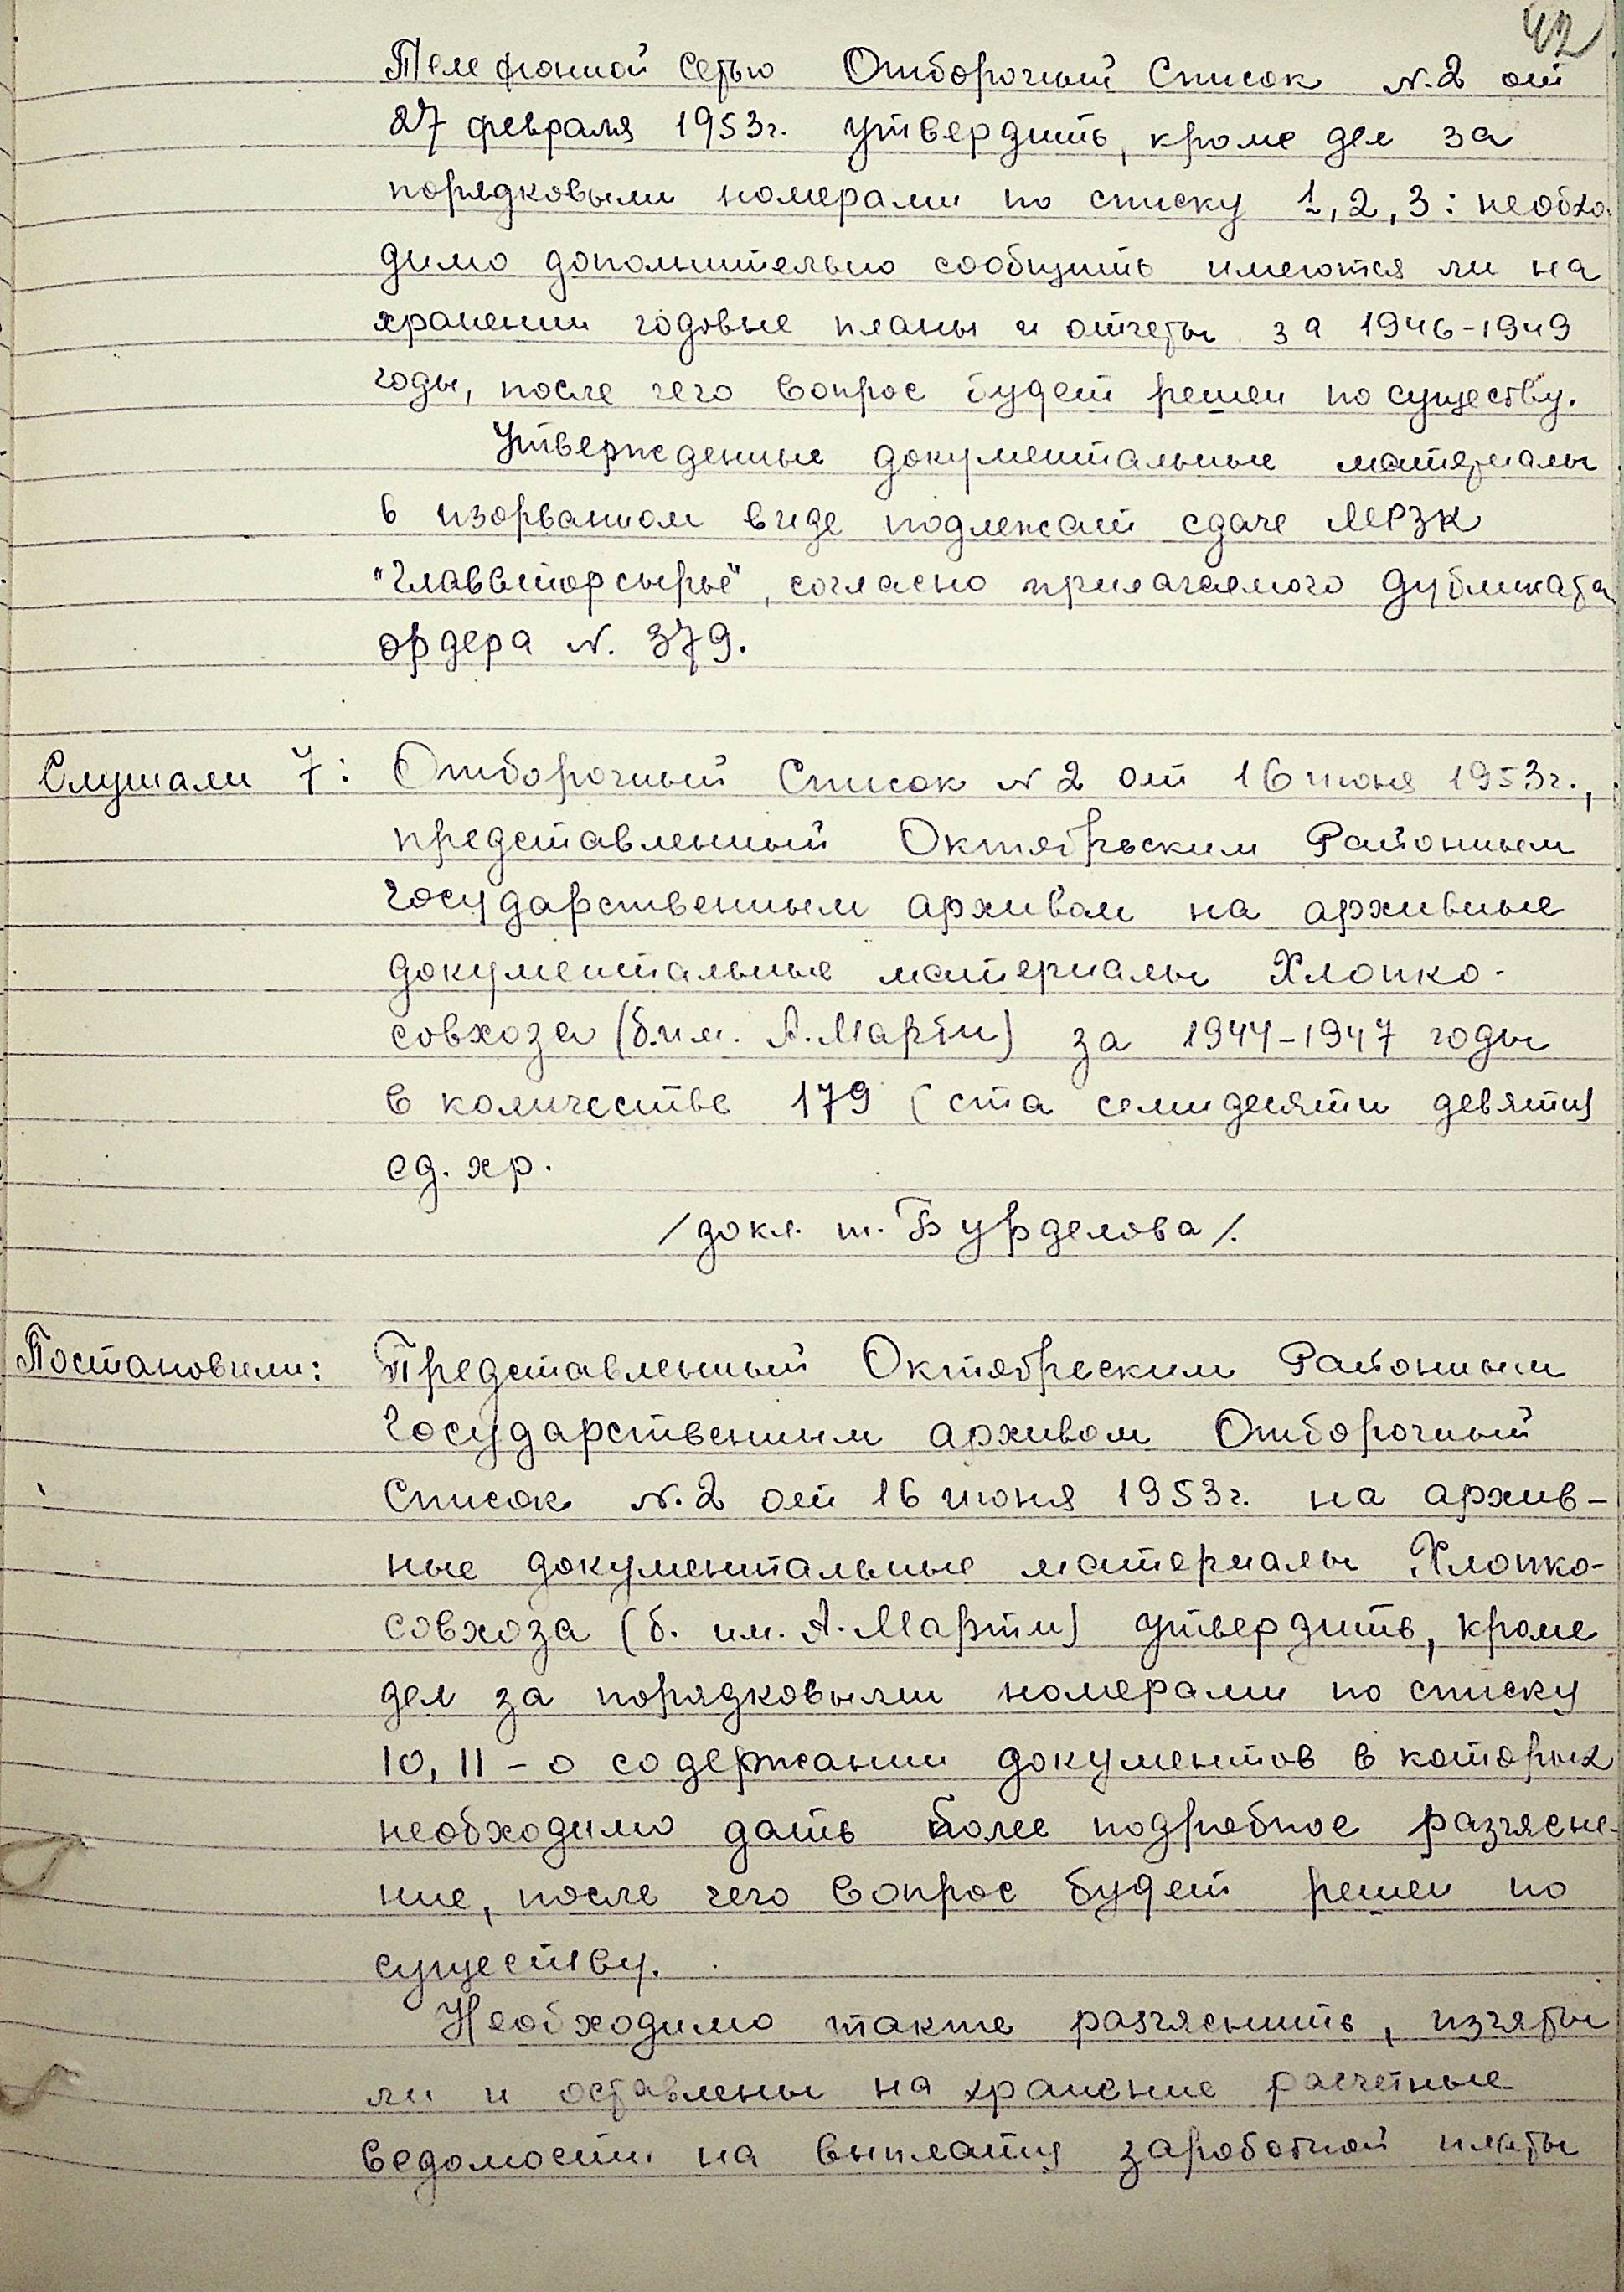 42
Телефонной Сетью Отборочный Список №2 от
27 февраля 1953г. утвердить, кроме дел за
порядковыми номерами по списку 1, 2, 3: необхо-
димо дополнительно сообщить имеются ли на
хранении годовые планы и отчеты за 1946-1949
годы, после чего вопрос будет решен по существу.
Утвержденные документальные материалы
в изорванном виде подлежат сдаче МРЗК
"Главвторсырье", согласно прилагаемого дубликата
ордера №. 379.
Слушали 7: Отборочный Список №2 от 16 июня 1953г.,
представленный Октябрьским Районным
Государственным архивом на архивные
документальные материалы Хлопко-
совхоза (б.им. А.Марти) за 1944-1947 годы
в количестве 179 (ста семидесяти девяти)
ед. хр.
/докл. т. Бурделова/.
Постановили: Представленный Октябрьским Районным
Государственным архивом Отборочный
Список №.2 от 16 июня 1953г. на архив-
ные документальные материалы Хлопко-
совхоза (б. им. А. Марти) утвердить, кроме
дел за порядковыми номерами по списку
10, 11 - о содержании документов в которых
необходимо дать более подробное разъясне-
ние, после чего вопрос будет решен по
существу.
Необходимо также разъяснить, изъяты
ли и оставлены на хранение расчетные
ведомости на выплату заработной платы